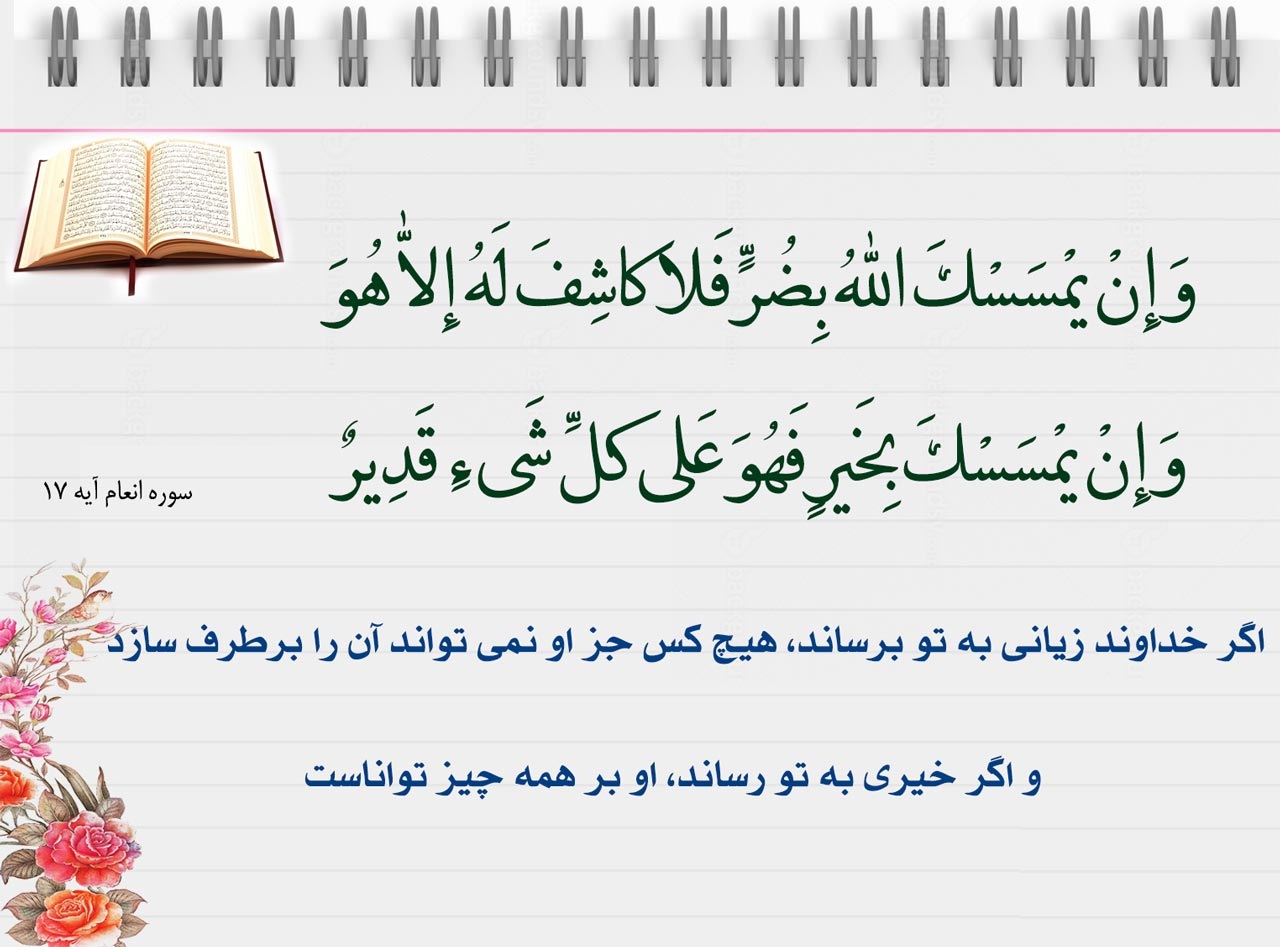 وَ إِنْ يَمْسَسْكَ اللّٰهُ بِضُرٍّ فَلا كاشِفَ لَهُ إِلاّٰ هُوَ
وَ إِنْ يَمْسَسْكَ بِخَيرٍ فَهُوَ عَلى كلِّ شَىءٍ قَدِيرٌ
سوره انعام آیه ۱۷
اگر خداوند زیانی به تو برساند، هیچ کس جز او نمی تواند آن را برطرف سازد
و اگر خیری به تو رساند، او بر همه چیز تواناست